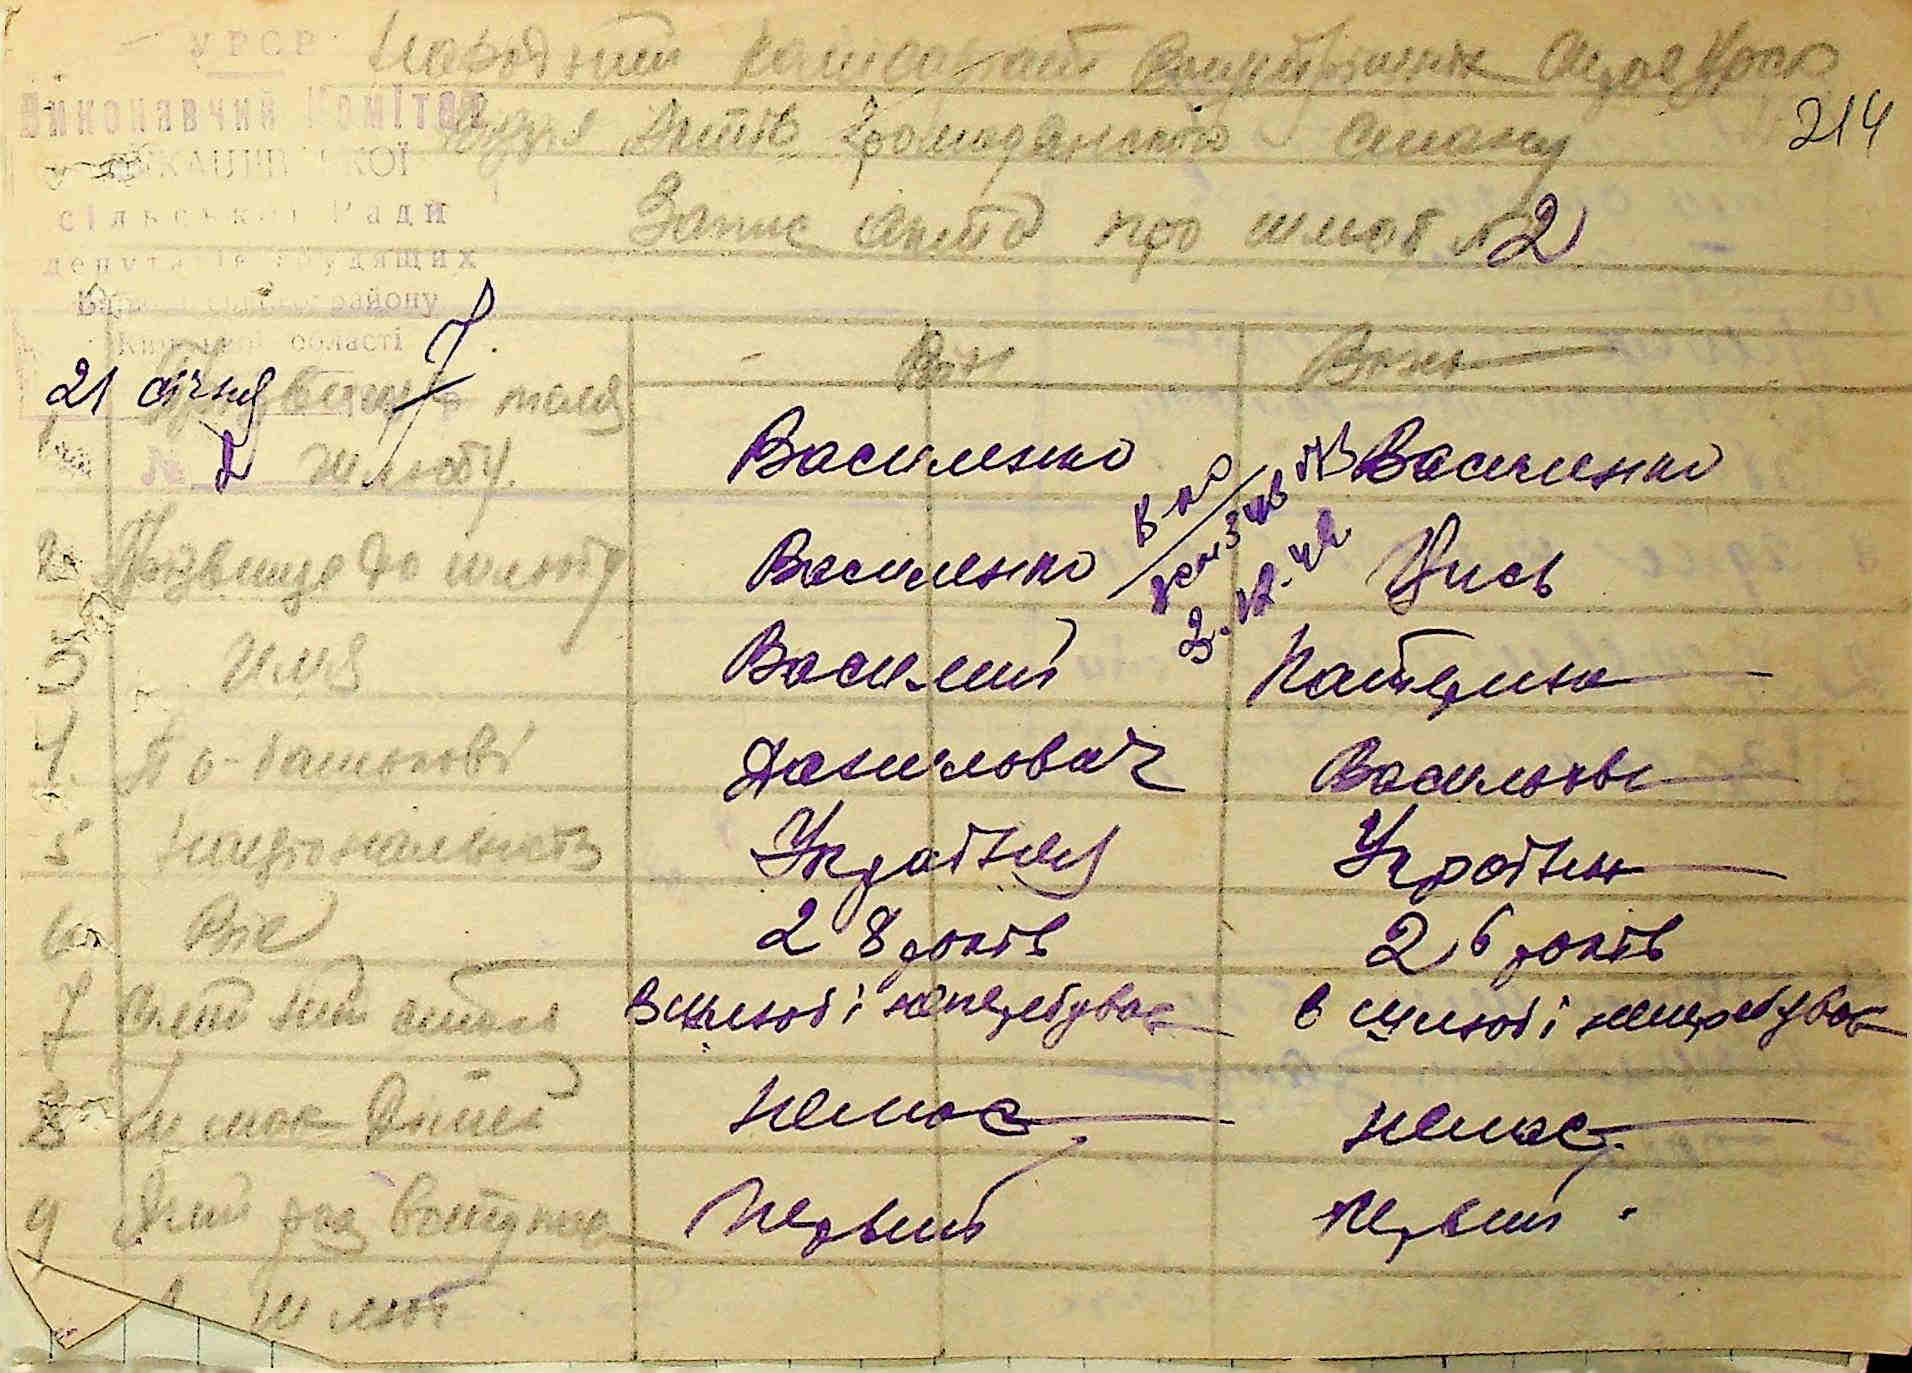 УРСР
Виконавчий Комітет
сільської Ради
депутатів трудящих
району
області
Народний комісаріат Внутрішніх
Відділ Актів Громадянського стану
214
Запис акта про шлюб №2
21 січня
№ 2
Він Вона
1 після шлюбу. Василенко Василенко
2 Прізвище до шлюбу Василенко Цись
3 Имя Василий Катерина
4. По-батькові Данилович Васильевн
5 Національність Українец Українка
6 Вік 28 років 26 років
7 стан В шлюбі неперебував в шлюбі неперебував
8 Чи має дітей немає немає
9 Який раз вступає Первий Первий
в шлюб